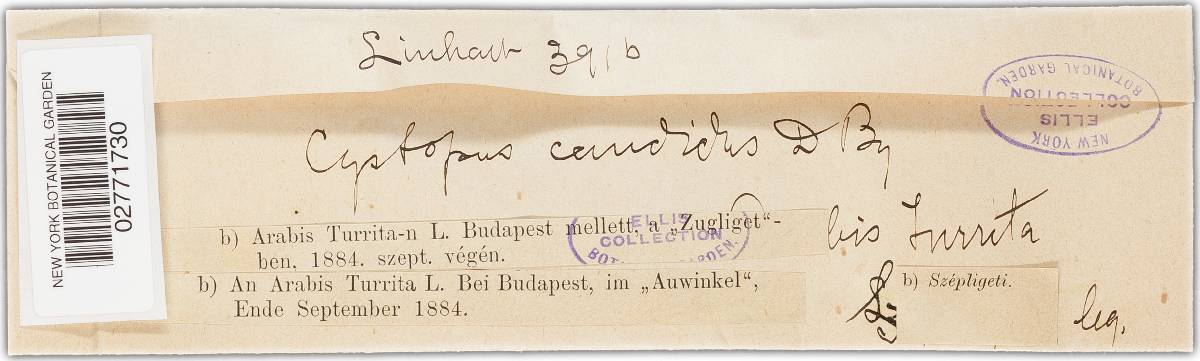 Linhart 391 b
NEW YORK BOTANICAL GARDEN
02771730
NEW YORK
ELLIS
COLLECTION
BOTANICAL GARDEN.
Cystopus candidus D By
b) Arabis Turrita-n L. Budapest mellett, a „Zugliget“-
ben, 1884. szept. végén.
ELLIS
COLLECTION
bis Turrita
b) An Arabis Turrita L. Bei Budapest, im „Auwinkel“,
Ende September 1884.
b) Szépligeti.
leg.